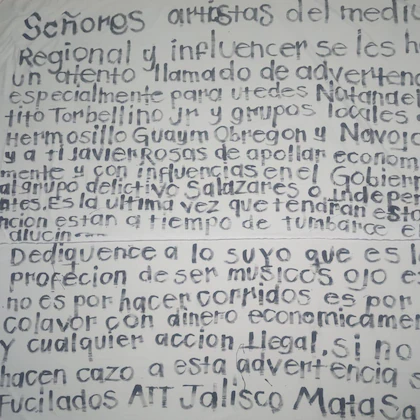 Señores artistas del medio
Regional y influencer se les h
un atento llamado de adverten
especialmente para utedes Natanael
tito Torbellino jr y grupos locales
Hermosillo Guaym Obregon y Navojo
y a ti Javier Rosas de apollar econom
mente y con influencias en el Gobier
al grupo delictivo Salazares o indepe
ntes. Es la ultima vez que tendran est
ncion estan a tiempo de tumbarce e
alucin
Dediquence a lo suyo que es l
profecion de ser musicos ojo e
no es por hacer corridos es por
colavor con dinero economicamen
y cualquier accion Ilegal, si no
hacen cazo a esta advertencia s
Fucilados ATT Jalisco Mata Sa